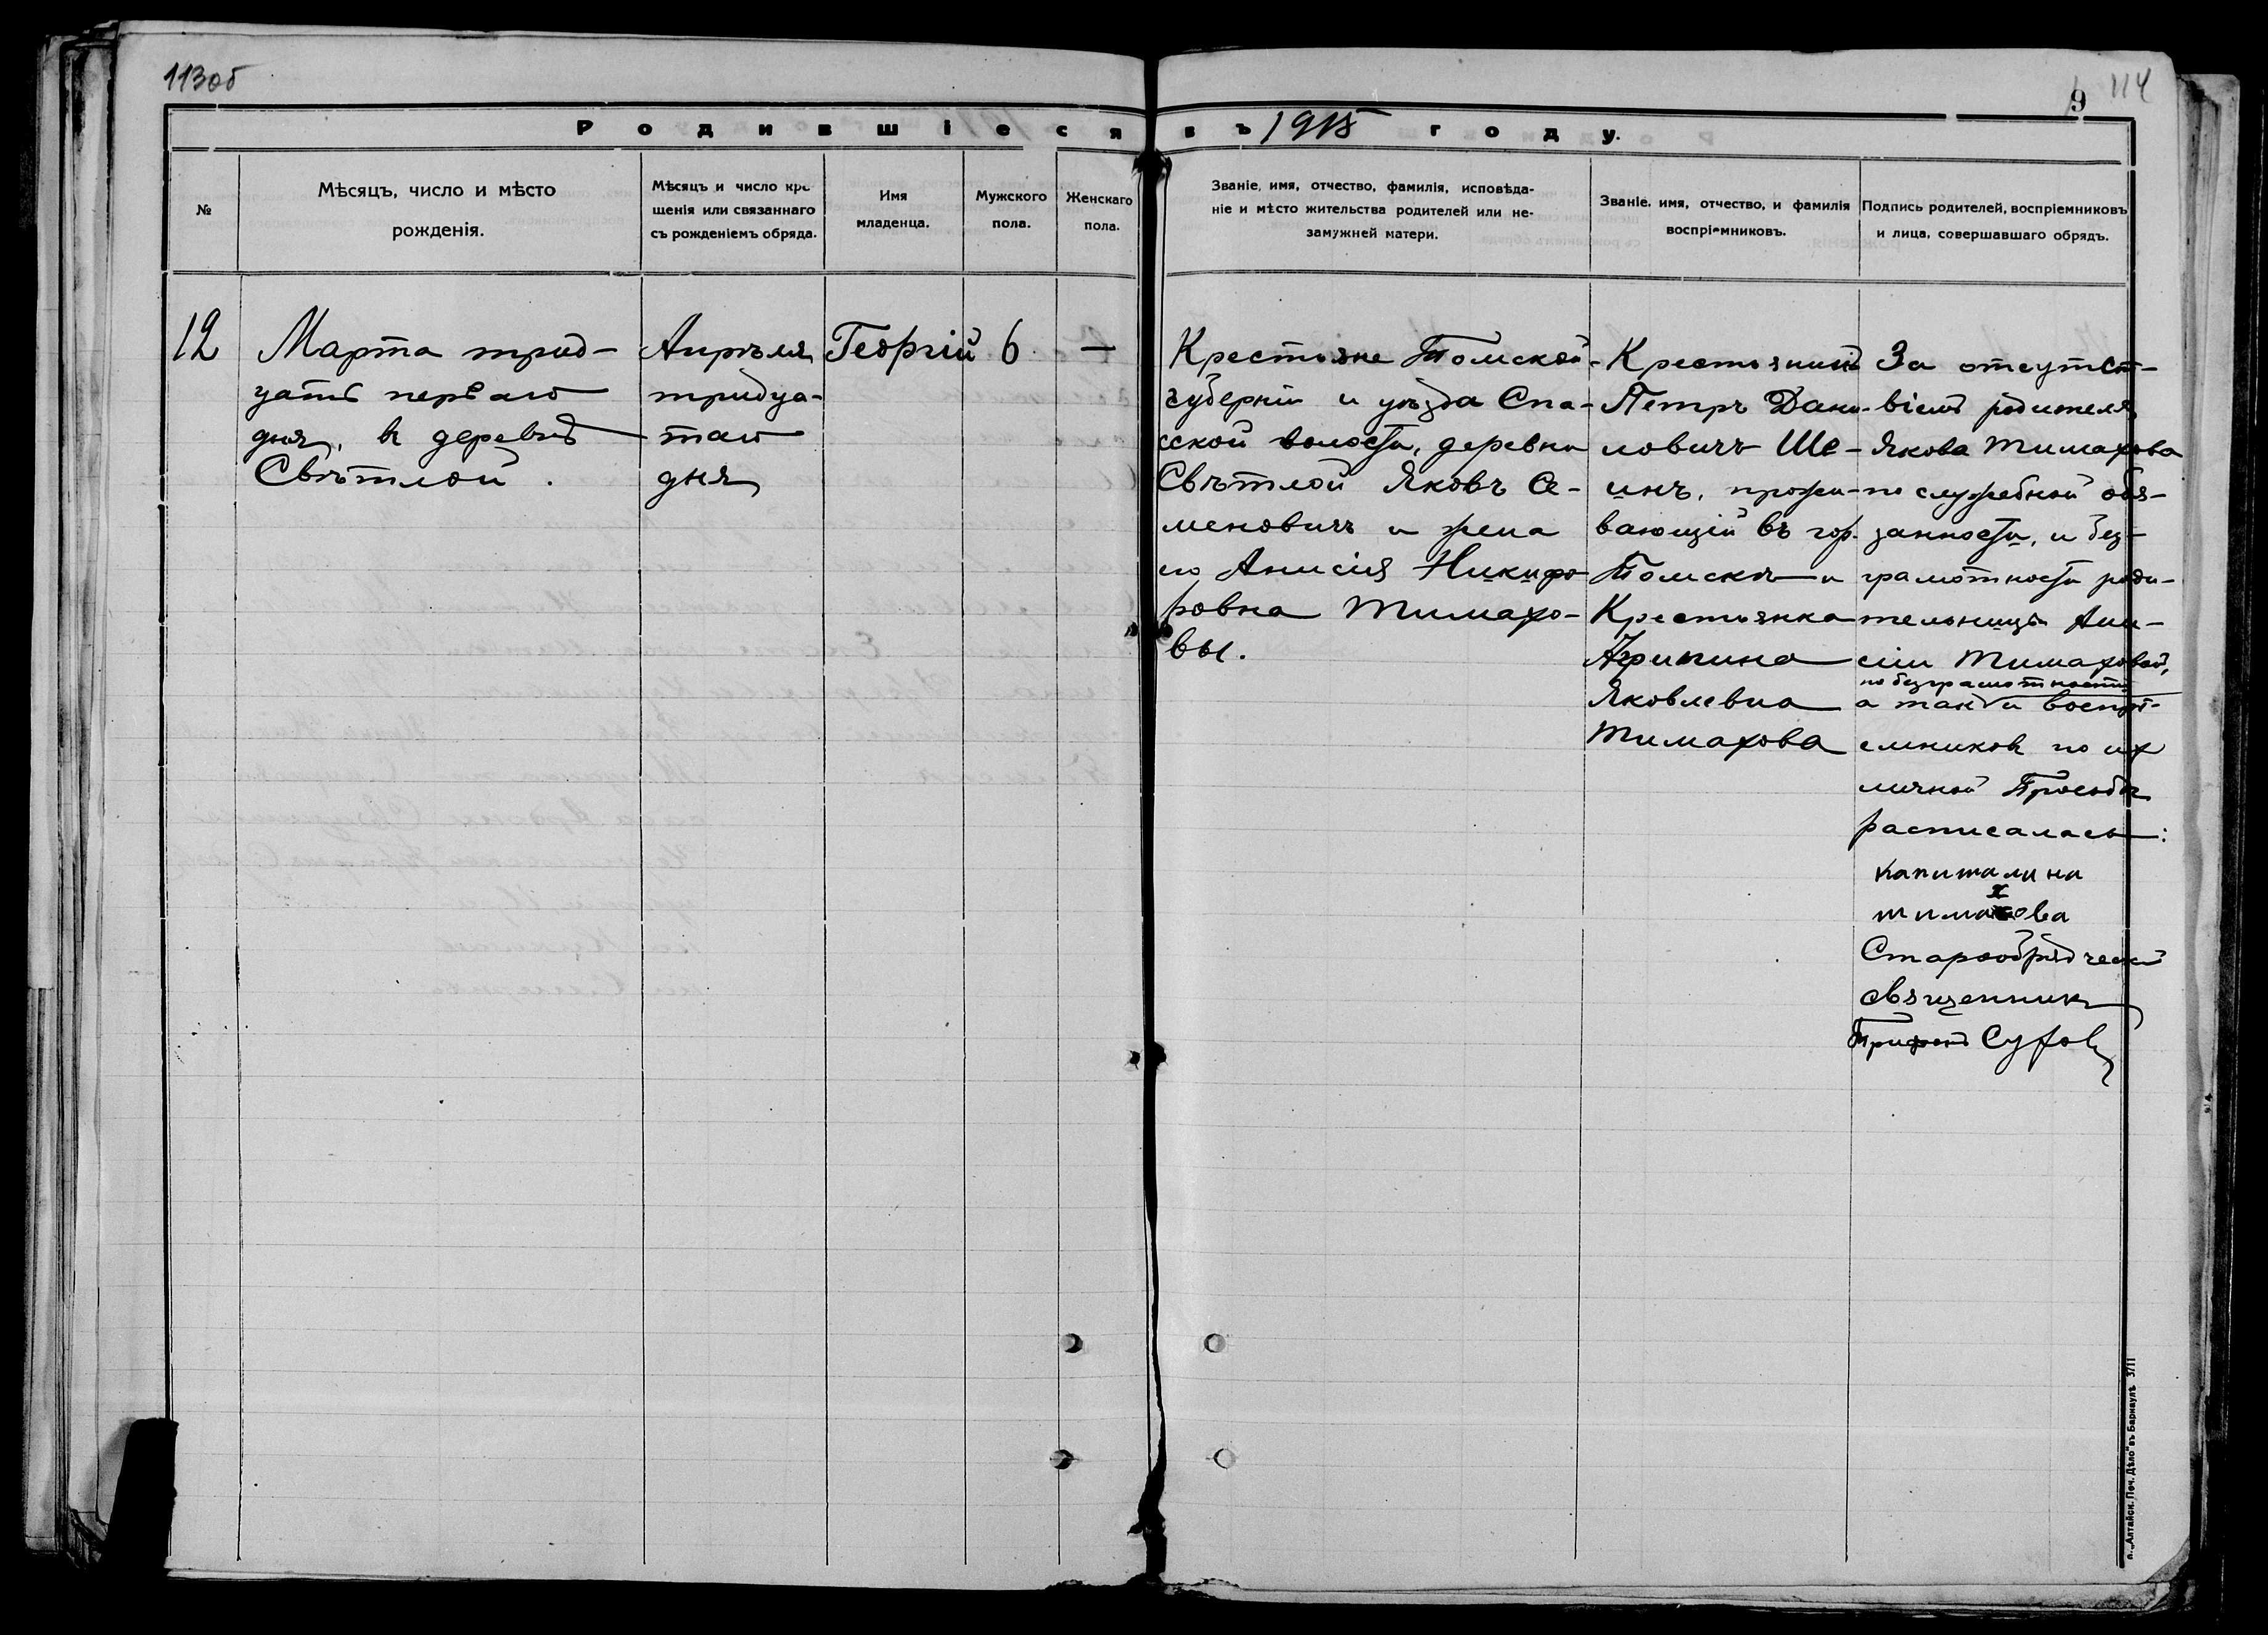 113об
9 114
Родившіеся въ 1915 году.
№
Мѣсяцъ, число и мѣсто
рожденія.
Мѣсяцъ и число кре
щенія или связаннаго
съ рожденіемъ обряда.
Имя
младенца.
Мужского
пола.
Женскаго
пола.
Званіе, имя, отчество, фамилія, исповѣда-
ніе и мѣсто жительства родителей или не-
замужней матери.
Званіе, имя, отчество, и фамилія
воспріемниковъ.
Подпись родителей, воспріемниковъ
и лица, совершавшаго обрядъ.
12
Марта трид-
цать перваго
дня, въ деревнѣ
Свѣтлой.
Апрѣля
тридца-
таго
дня
Георгій
6
—
Крестьяне Томской
губерніи и уѣзда Спа-
сской волости, деревни
Свѣтлой Яковъ Се-
меновичъ и жена
его Анисія Никифо-
ровна Тимахо-
вы.
Крестьянинъ
Петръ Дани-
ловичъ Ше-
инъ, прожи-
вающій въ гор.
Томскѣ и
Крестьянка
Агрипина
Яковлевна
Тимахова
За отсутст-
віемъ родителя
Якова Тимахова
по служебной обя-
занности, и без-
грамотности роди-
тельницы Ани-
сіи Тимаховой,
по безграмотности
а так и воспрі-
емниковъ по их
личной Просьбѣ
расписалась:
Капиталина
х
тимахова
Старообрядческій
священникъ
Трифонъ Суховъ
п. „Алтайск. Печ. Дѣло" въ Барнаулѣ 3711